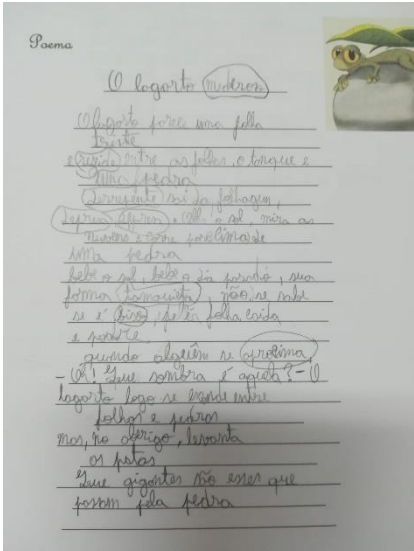 Poema
O lagarto medroso
O lagarto parece uma folha
triste
e reside entre as folhas, o tanque e
uma pedra
Derrepente sai da folhagem,
depresa depresa. o sol, mira as
nuvens e corre para cima de
uma pedra
bebe o sol, bebe o dia parado, sua
forma , não se sabe
se é bixo, se é folha caida
e
quando alguêm se aprosima,
- Oh! Que sombra é aquela? - O
lagarto logo se esconde entre
folhas e pedras
mas, no abrigo, levanta
as patas
Que gigantes são esses que
passam pela pedra